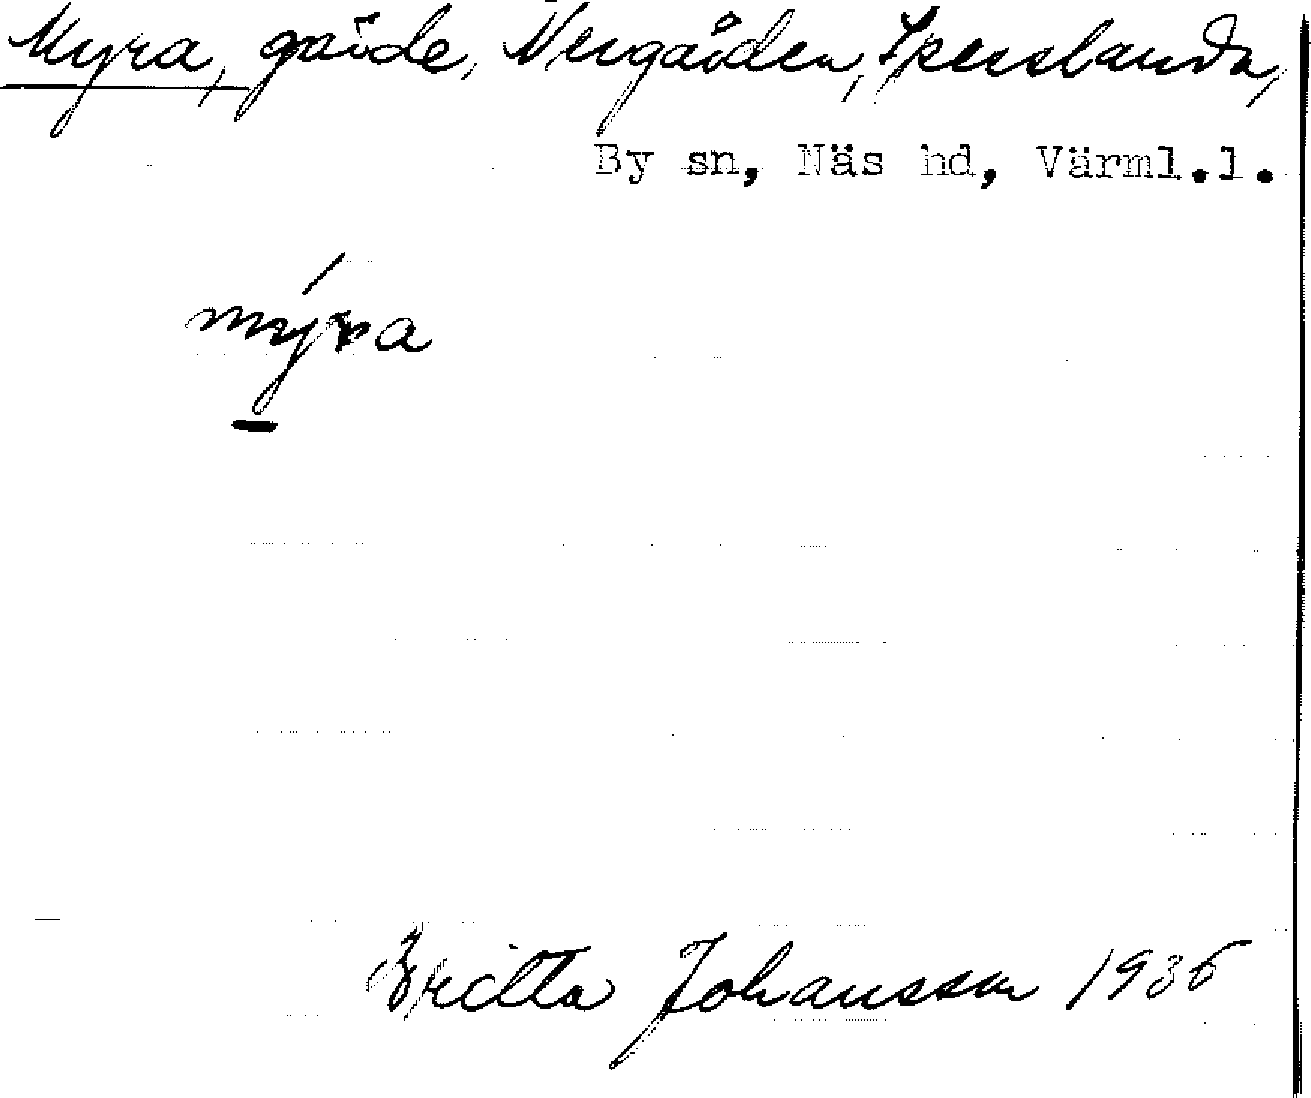 Myra, gärde, Nergården, Sperslanda,
By sn, Näs hd, Värml.l.
mýra
Britta Johansson 1936